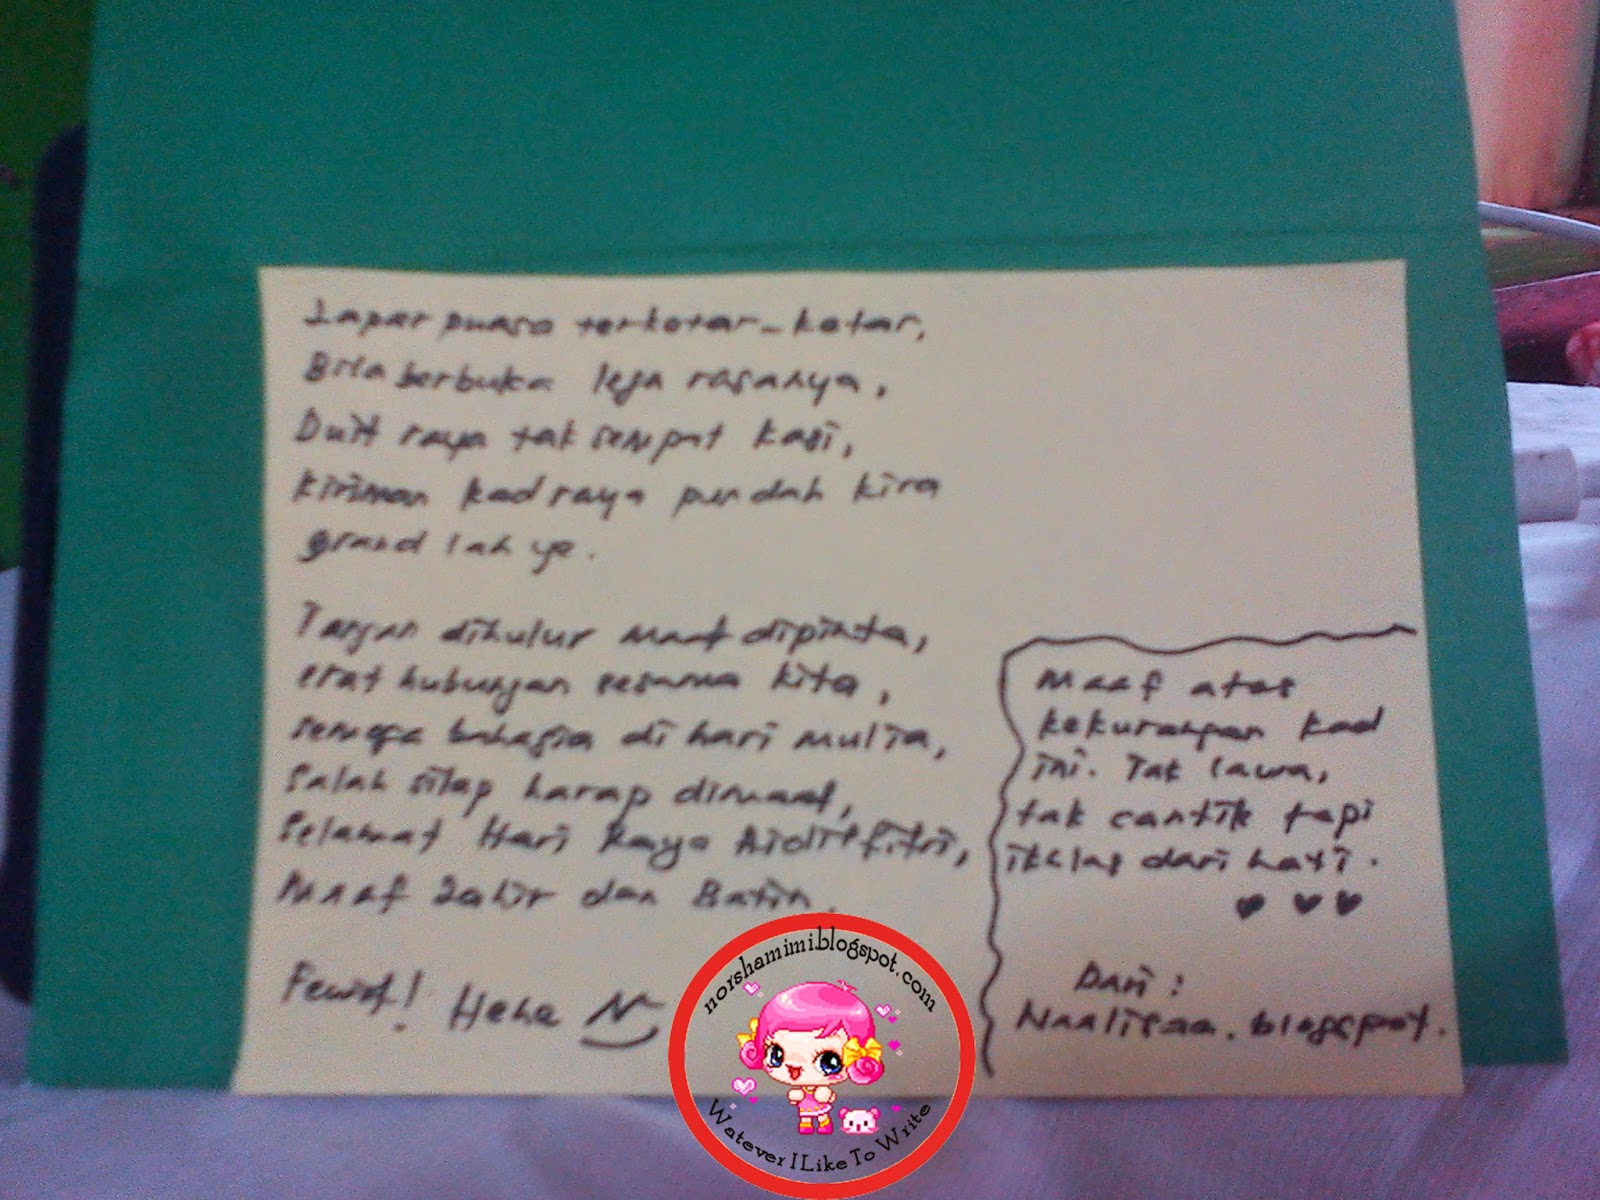 Lapar puasa terkotar-kotar,
Bila berbuka lega rasanya,
Duit raya tak sempat kasi,
Kiriman kad raya pun dah kira
grand lah ye.
Tangan dihulur maaf dipinta,
erat hubungan sesama kita,
semoga bahagia di hari mulia,
Salah silap harap dimaaf,
Selamat Hari Raya Aidilfitri,
Maaf Zahir dan Batin.
Fewit! Hehe
Maaf atas
kekurangan kad
ini. Tak lawa,
tak cantik tapi
ikhlas dari hati.
Dari :
Naalisaa.blogspot.
norshamimi.blogspot.com
Watever I Like To Write